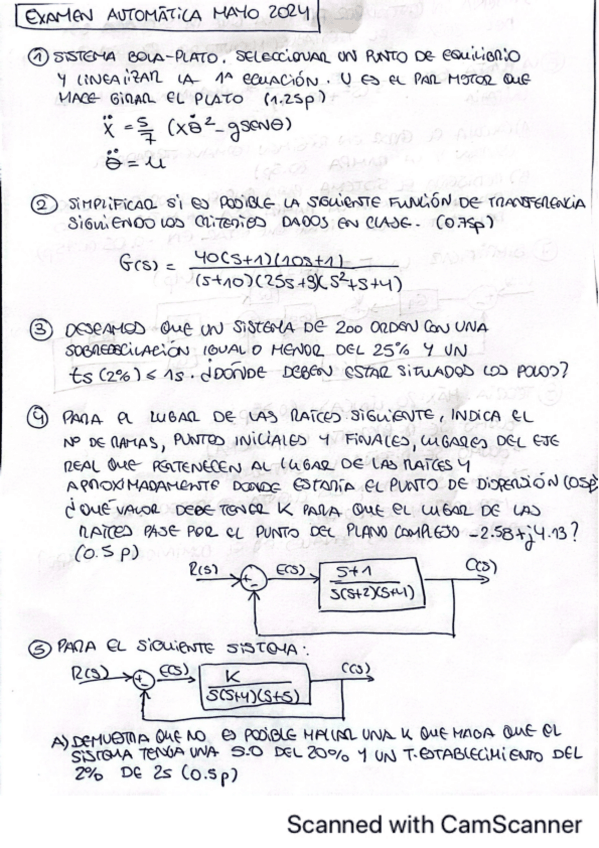 EXAMEN AUTOMÁTICA MAYO 2024
① SISTEMA BOLA-PLATO. SELECCIONAR UN PUNTO DE EQUILIBRIO
Y LINEALIZAR LA 1ª ECUACIÓN. U ES EL PAR MOTOR QUE
HACE GIRAR EL PLATO (1.25p)
ẍ = 5/7 (xθ̇² - gSENθ)
θ̈ = u
② SIMPLIFICAR SI ES POSIBLE LA SIGUIENTE FUNCIÓN DE TRANSFERENCIA
SIGUIENDO LOS CRITERIOS DADOS EN CLASE. (0.75p)
G(s) = 40(s+1)(10s+1) / (s+10)(25s+9)(s²+s+4)
③ DESEAMOS QUE UN SISTEMA DE 2do ORDEN CON UNA
SOBREOSCILACIÓN IGUAL O MENOR DEL 25% Y UN
ts(2%) ≤ 1s. ¿DÓNDE DEBEN ESTAR SITUADOS LOS POLOS?
④ PARA El LUGAR DE LAS RAÍCES SIGUIENTE, INDICA EL
Nº DE RAMAS, PUNTOS INICIALES Y FINALES, LUGARES DEL EJE
REAL QUE PERTENECEN AL LUGAR DE LAS RAÍCES Y
APROXIMADAMENTE DONDE ESTARÍA EL PUNTO DE DISPERSIÓN (0.5p)
¿QUÉ VALOR DEBE TENER K PARA QUE EL LUGAR DE LAS
RAÍCES PASE POR EL PUNTO DEL PLANO COMPLEJO -2.58+j4.13?
(0.5 p)
R(s) + - E(s) s+1 / s(s+2)(s+4) C(s)
⑤ PARA EL SIGUIENTE SISTEMA:
R(s) + - E(s) K / s(s+4)(s+5) C(s)
A) DEMUESTRA QUE NO ES POSIBLE HALLAR UNA K QUE HAGA QUE EL
SISTEMA TENGA UNA S.O DEL 20% Y UN T. ESTABLECIMIENTO DEL
2% DE 2s (0.5p)
Scanned with CamScanner